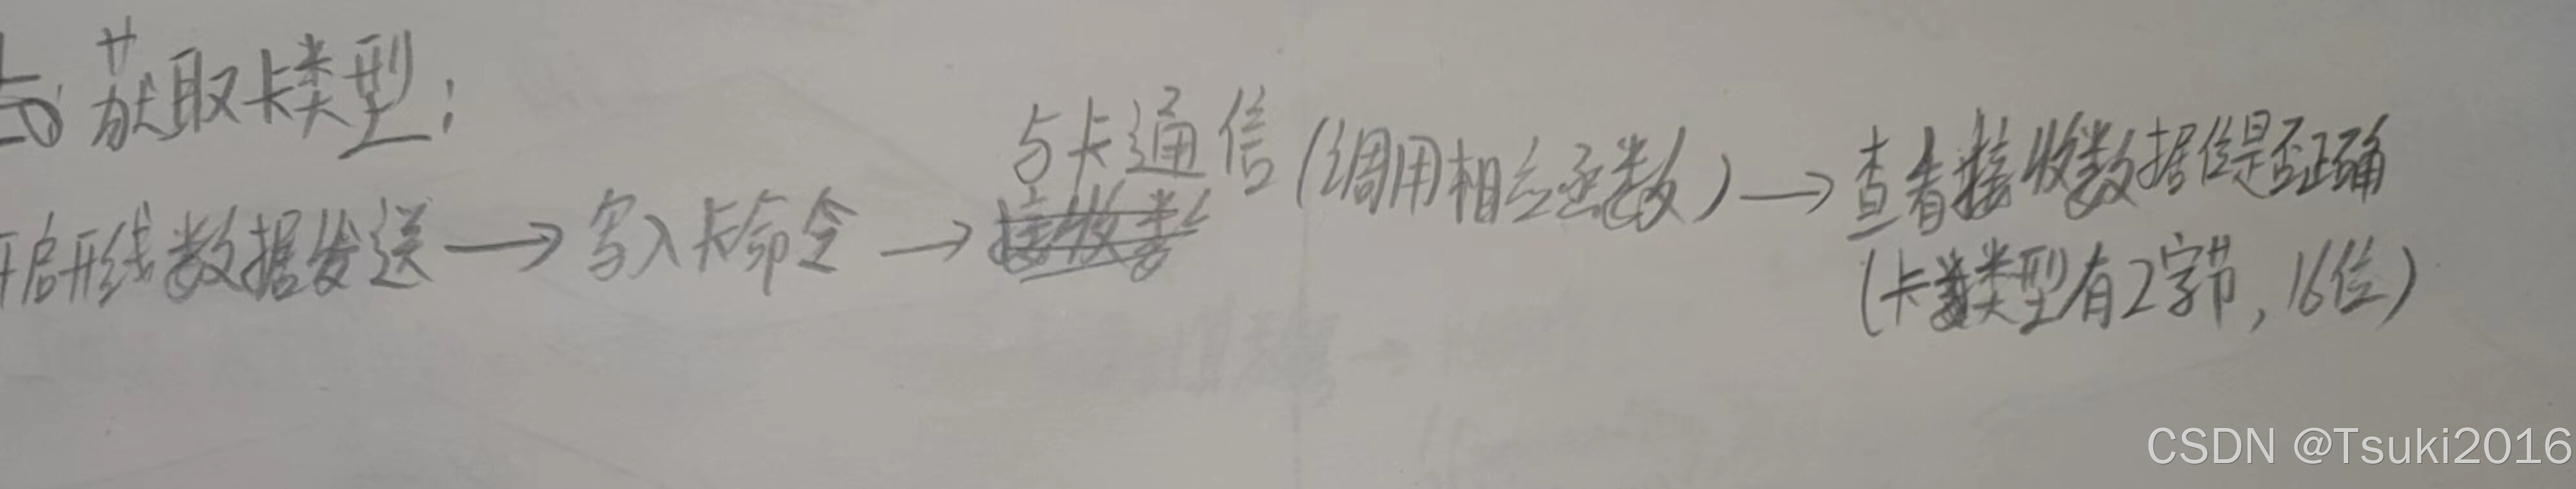 获取卡类型:
开启开线数据发送→写入卡命令→与卡通信(调用相应函数)→查看接收数据位是否正确
(卡类型有2字节,16位)
CSDN @Tsuki2016